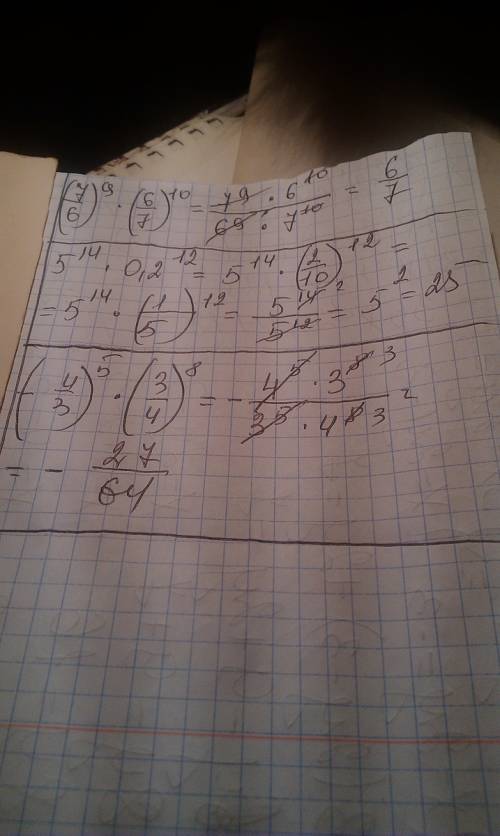 (7/6)⁹ · (6/7)¹⁰ = (7⁹ · 6¹⁰)/(6⁹ · 7¹⁰) = 6/7
5¹⁴ · 0,2¹² = 5¹⁴ · (2/10)¹² =
= 5¹⁴ · (1/5)¹² = 5¹⁴ ²/5¹² = 5² = 25
(-4/3)⁵ · (3/4)⁸ = - (4⁵ · 3⁸ ³)/(3⁵ · 4⁸ ³) =
= - 27/64